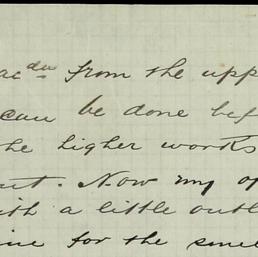 from the upp
can be done bef
he higher works
out. Now my op
ith a little outl
ine for the smel